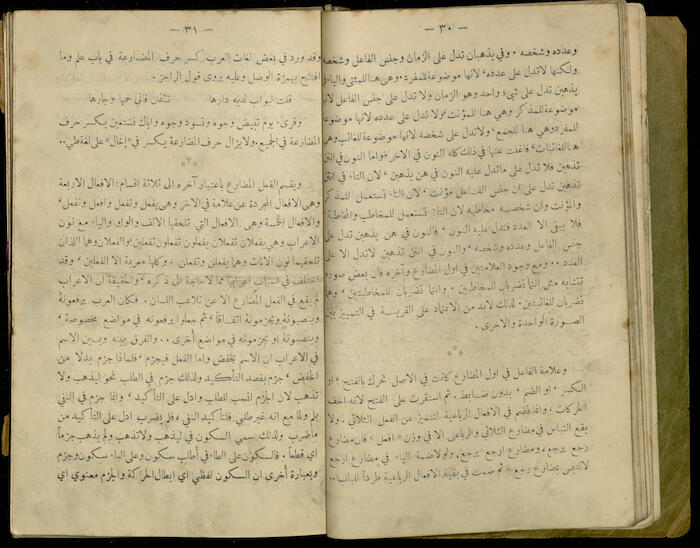 — ٣٠ —
وعدده وشخصه . وفي يذهبان تدل على الزمان وجنس الفاعل وشخصه
ولكنها لا تدل على عدده، لانها موضوعة للمفرد . وهي هنا للمثنى والياء في
يذهبن تدل على شيء واحد وهو الزمان ولا تدل على جنس الفاعل لانها
موضوعة للمذكر وهي هنا للمؤنث، ولا تدل على عدده لانها موضوعة
للمفرد وهي هنا للجمع، ولا تدل على شخصه لانها موضوعة للغائب وهي
هنا للغائبات، فاغنت عنها في ذلك كله النون في الاخر، واما النون في انتن
تذهبن فلا تدل على ما تدل عليه النون في هن يذهبن، لان التاء في انتن
تذهبن تدل على ان جنس الفاعل مؤنث، لان التاء تستعمل للمذكر
والمؤنث وان شخصه مخاطبه لان التاء تستعمل للمخاطب والمخاطبة
فلا يبقى الا العدد فتدل عليه النون . فالنون في هن يذهبن تدل على
جنس الفاعل وعدده وشخصه، والنون في انتن تذهبن لا تدل الا على
العدد .. ومع وجود العلامتين في اول المضارع وآخره فان بعض صوره
تتشابه مثل انتما تضربان للمخاطبين . وانتما تضربان للمخاطبتين، وهما
تضربان للغائبتين . لذلك لابد من الاعتماد على القرينة في التمييز بين
الصورة الواحدة والاخرى .
***
وعلامة الفاعل في اول المضارع كانت في الاصل تحرك بالفتح، او
الكسر، او الضم، بدون ضابط . ثم استقرت على الفتح لانه اخف
الحركات، وانما تضم في الافعال الرباعية لتتميز عن الفعل الثلاثي . ولا
يقع التباس في مضارع الثلاثي والرباعي الا في وزن «افعل» فان مضارع
رجع يَرجع، ومضارع ارجع يُرجع، ولولا ضمة الياء في مضارع ارجع
لالتبس بمضارع رجع، ثم ضمت في بقية الافعال الرباعية طرداً للباب ..
— ٣١ —
وقد ورد في بعض لغات العرب كسر حرف المضارعة في باب علم وما
افتتح بهمزة الوصل وعليه يروى قول الراجز .
قلت لبواب لديه دارها تئذن فاني حمها وجارها
وقرىء يوم تبيض وجوه وتسود وجوه واياك نستعين بكسر حرف
المضارعة في الجميع . ولا يزال حرف المضارعة يكسر في «إخال» على لغة طي ..
***
ويقسم الفعل المضارع باعتبار آخره الى ثلاثة اقسام : الافعال الاربعة
وهي الافعال المجردة عن علامة في الاخر وهي يفعل وتفعل وافعل ونفعل،
والافعال الخمسة وهي الافعال التي تلحقها الالف والواو والياء مع نون
الاعراب وهي يفعلان تفعلان يفعلون تفعلون تفعلين، والفعلان وهما اللذان
تلحقهما نون الاناث وهما يفعلن وتفعلن . وكلها معربة الا الفعلين، وقد
اختلف في اسباب اعرابها مما لا حاجة الى ذكره، والحقيقة ان الاعراب
لم يقع في الفعل المضارع الا عن تلاعب اللسان . فكان العرب يرفعونه
وينصبونه ويجزمونه اتفاقاً، ثم جعلوا يرفعونه في مواضع مخصوصة،
وينصبونه او يجزمونه في مواضع أخرى .. والفرق بينه وبين الاسم
في الاعراب ان الاسم يخفض واما الفعل فيجزم، فلماذا جزم بدلا من
الخفض، جزم بقصد التأكيد ولذلك جزم في الطلب نحو ليذهب ولا
تذهب لان الجزم انسب للطلب وادل على التأكيد، وانما جزم في النفي
بلم ولما مع انه غير طلبي، لتأكيد النفي، فلم يضرب ادل على التأكيد من
ما ضرب . ولذلك سمي السكون في ليذهب ولا تذهب ولم يذهب جزماً
اي قطعاً . فالسكون على الطاء في أطلب سكون وعلى الباء سكون وجزم
وبعبارة أخرى ان السكون لفظي اي ابطال الحركة والجزم معنوي اي